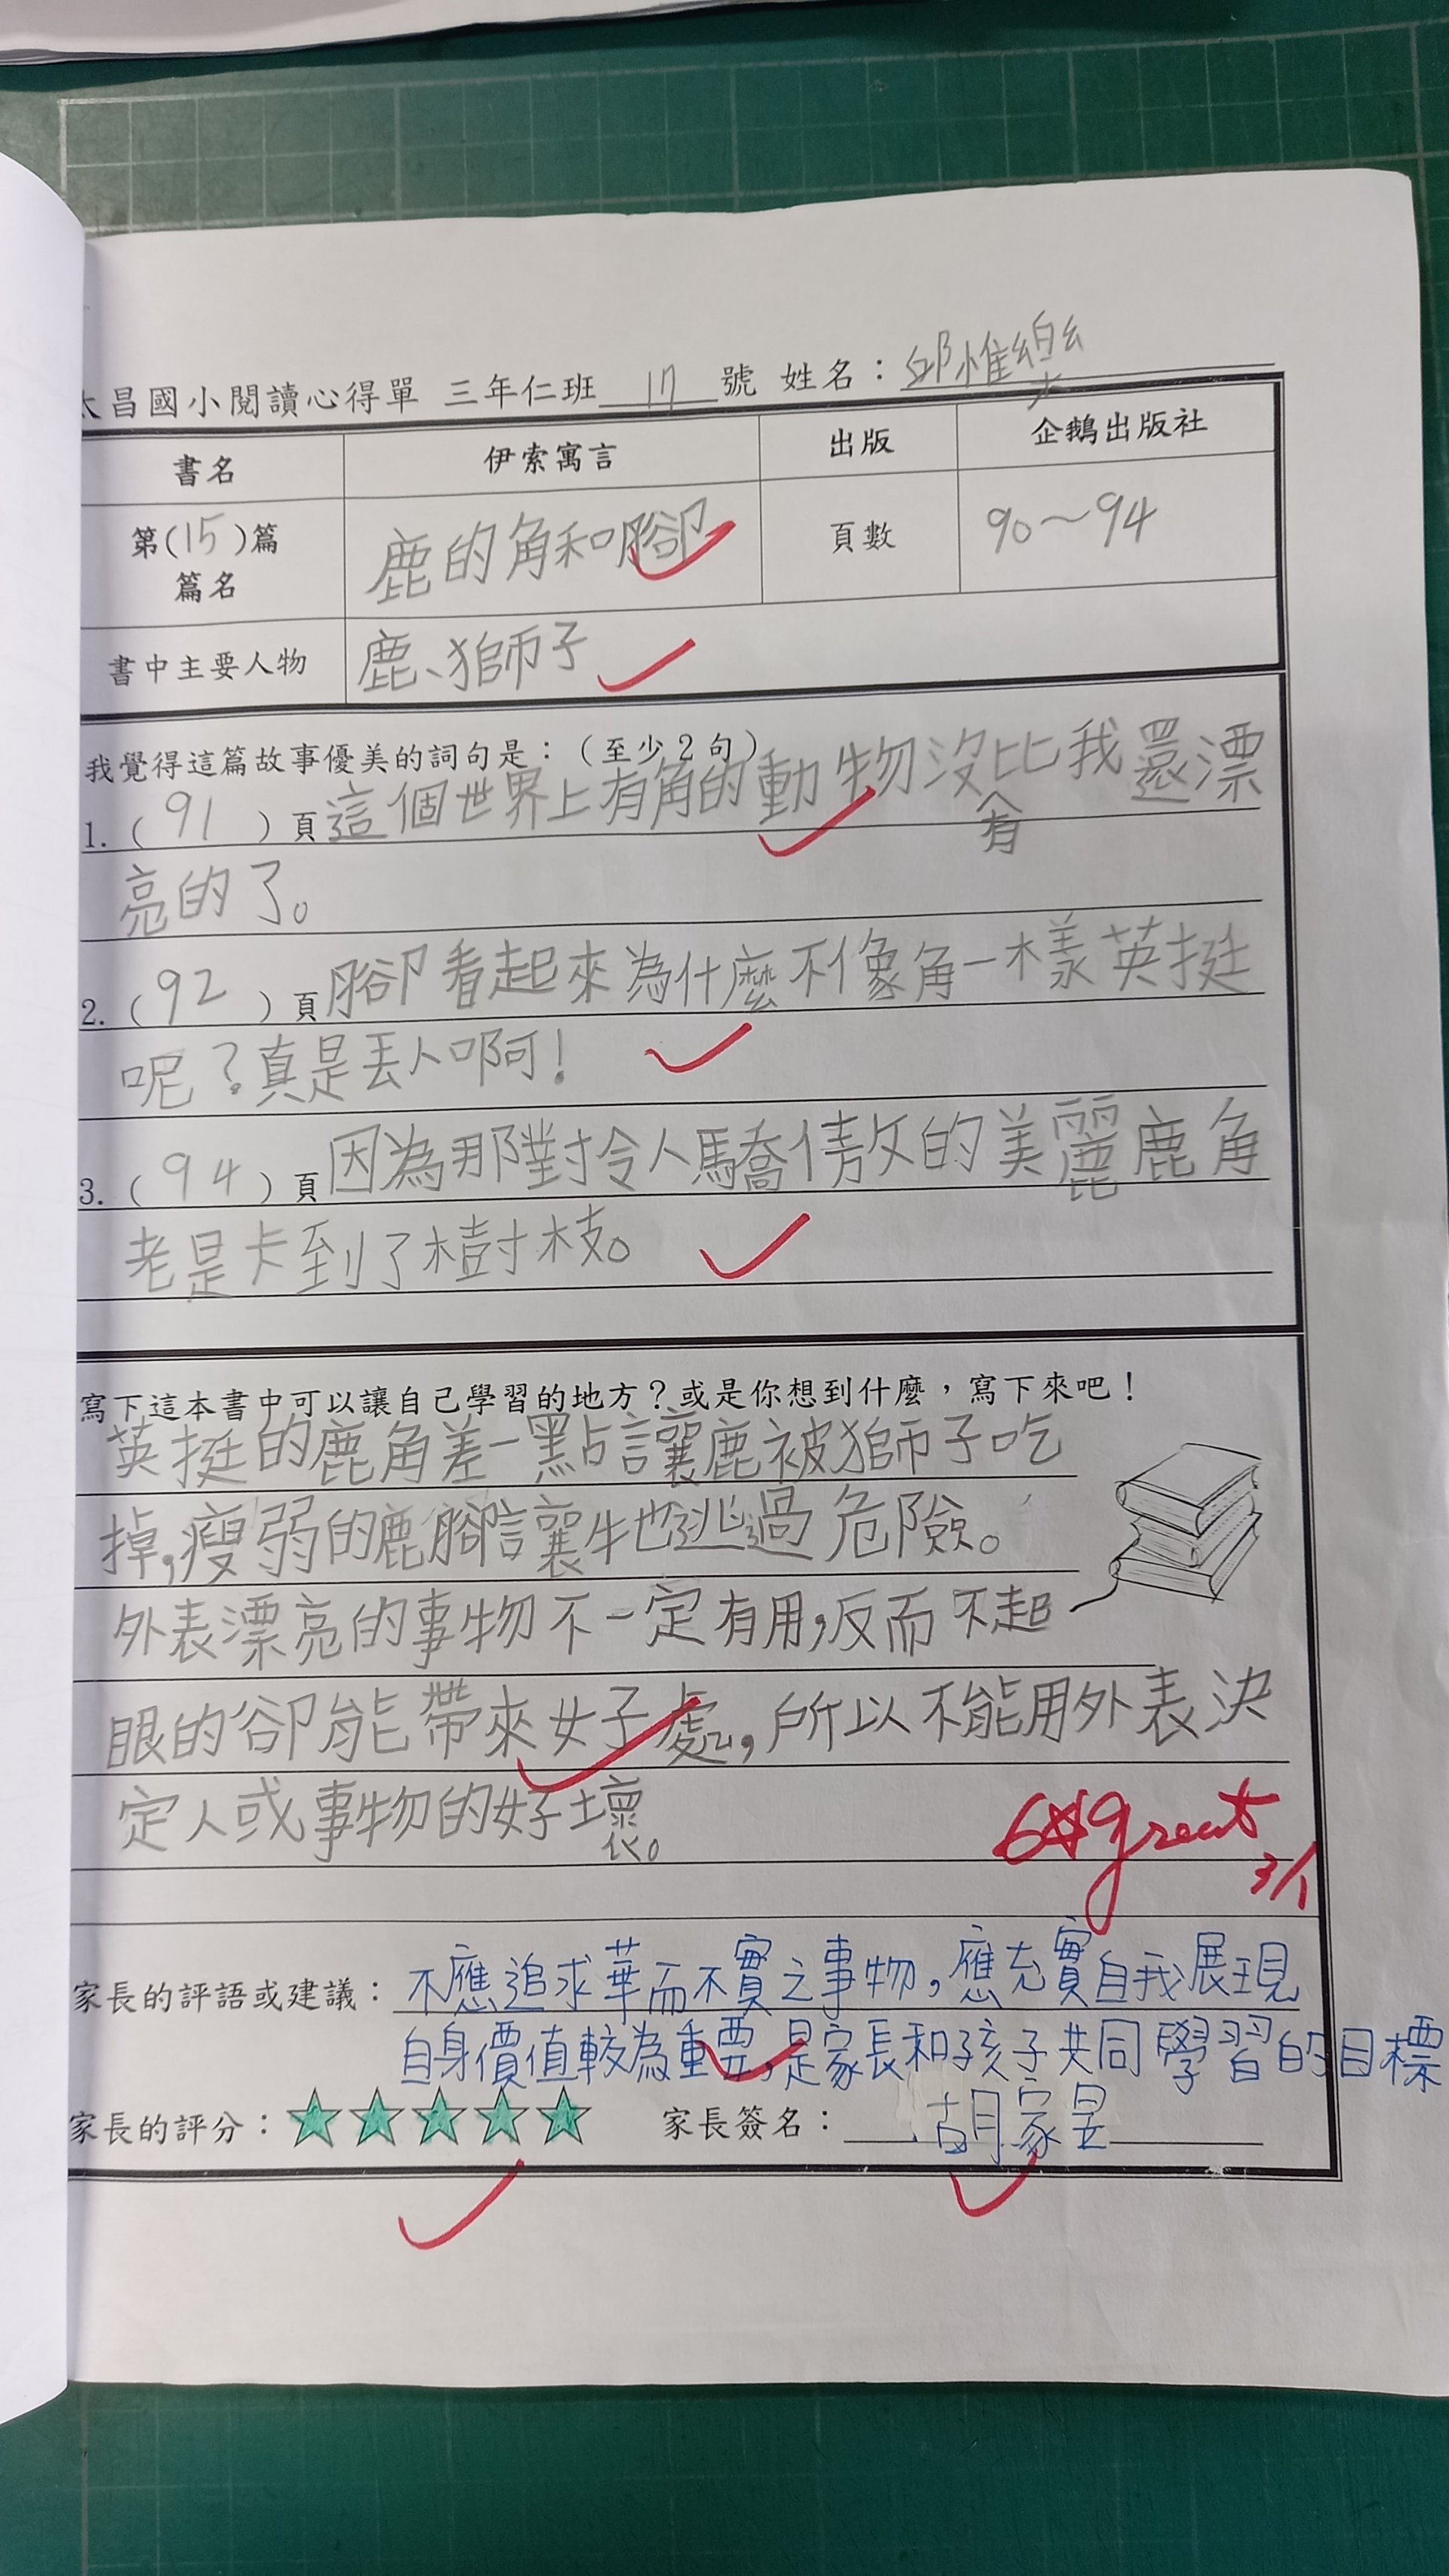 太昌國小閱讀心得單 三年仁班 17 號 姓名：邱惟樂
書名 伊索寓言 出版 企鵝出版社
第(15)篇
篇名 鹿的角和腳 頁數 90～94
書中主要人物 鹿、獅子
我覺得這篇故事優美的詞句是：（至少2句）
1.（91）頁這個世界上有角的動物沒有比我還漂
亮的了。
2.（92）頁腳看起來為什麼不像角一樣英挺
呢？真是丟人啊！
3.（94）頁因為那對令人驕傲的美麗鹿角
老是卡到了樹枝。
寫下這本書中可以讓自己學習的地方？或是你想到什麼，寫下來吧！
英挺的鹿角差一點讓鹿被獅子吃
掉，瘦弱的鹿腳讓牠逃過危險。
外表漂亮的事物不一定有用，反而不起
眼的卻能帶來好處，所以不能用外表決
定人或事物的好壞。
6☆great
3/1
家長的評語或建議：不應追求華而不實之事物，應充實自我展現
自身價值較為重要，是家長和孩子共同學習的目標
家長的評分：☆☆☆☆☆ 家長簽名：胡家昱